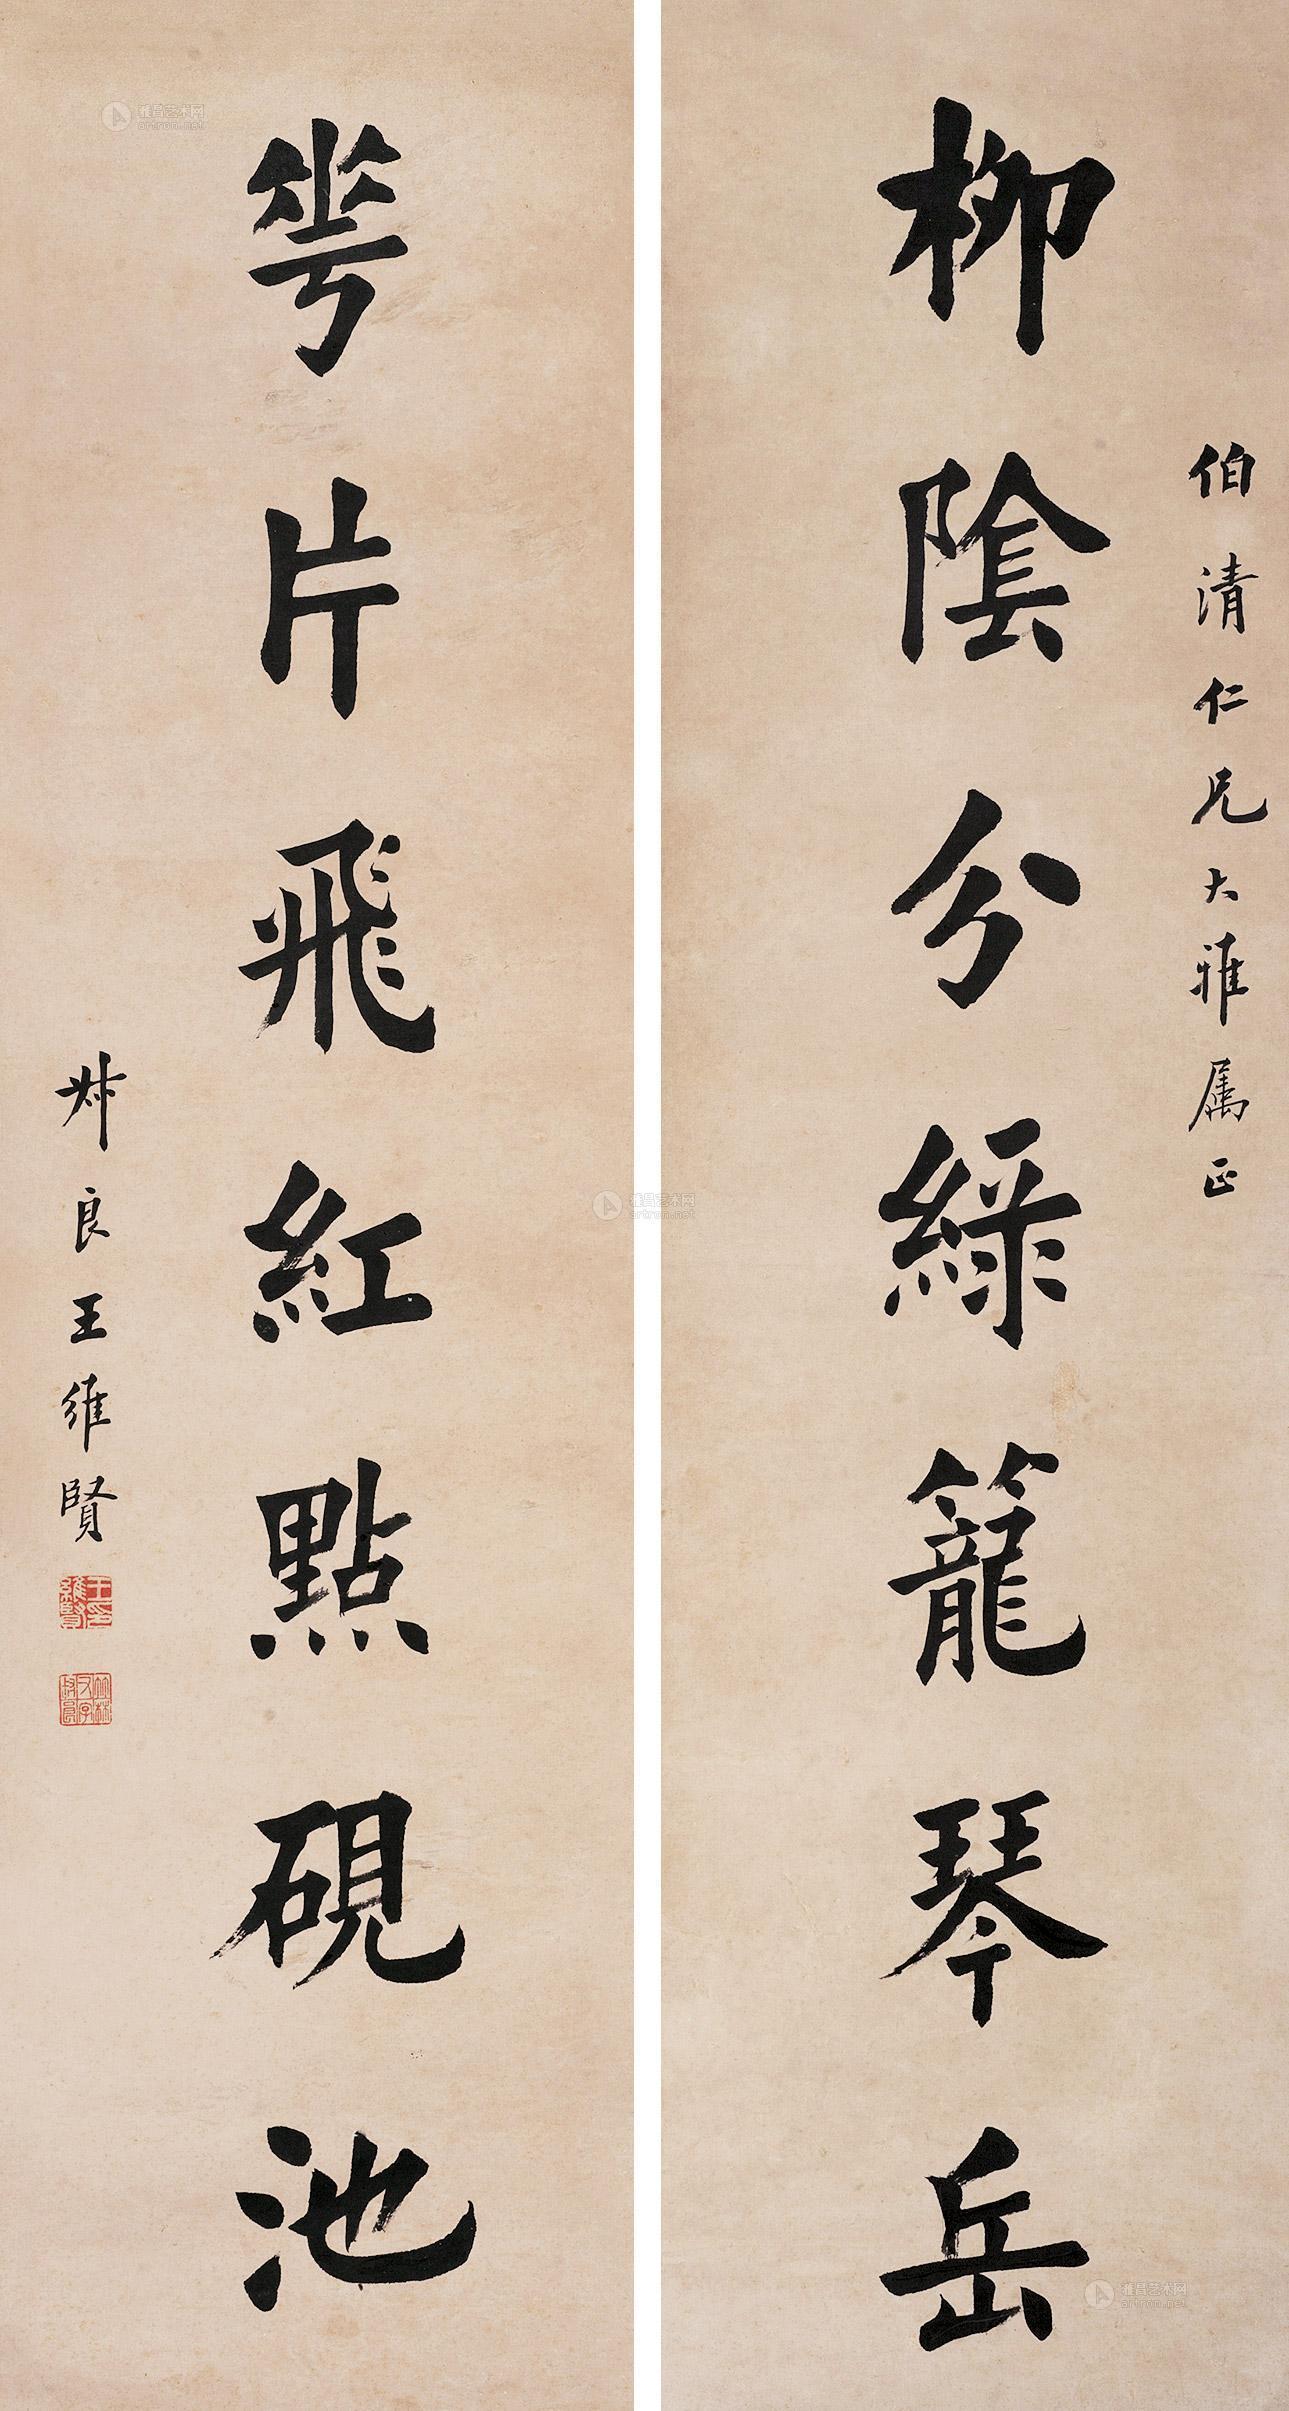 伯清仁兄大雅属正
柳陰分綠籠琴岳
花片飛紅點硯池
叔良王維賢
王維賢印
竹林又字叔良
雅昌艺术网
artron.net
雅昌艺术网
artron.net
雅昌艺术网
artron.net